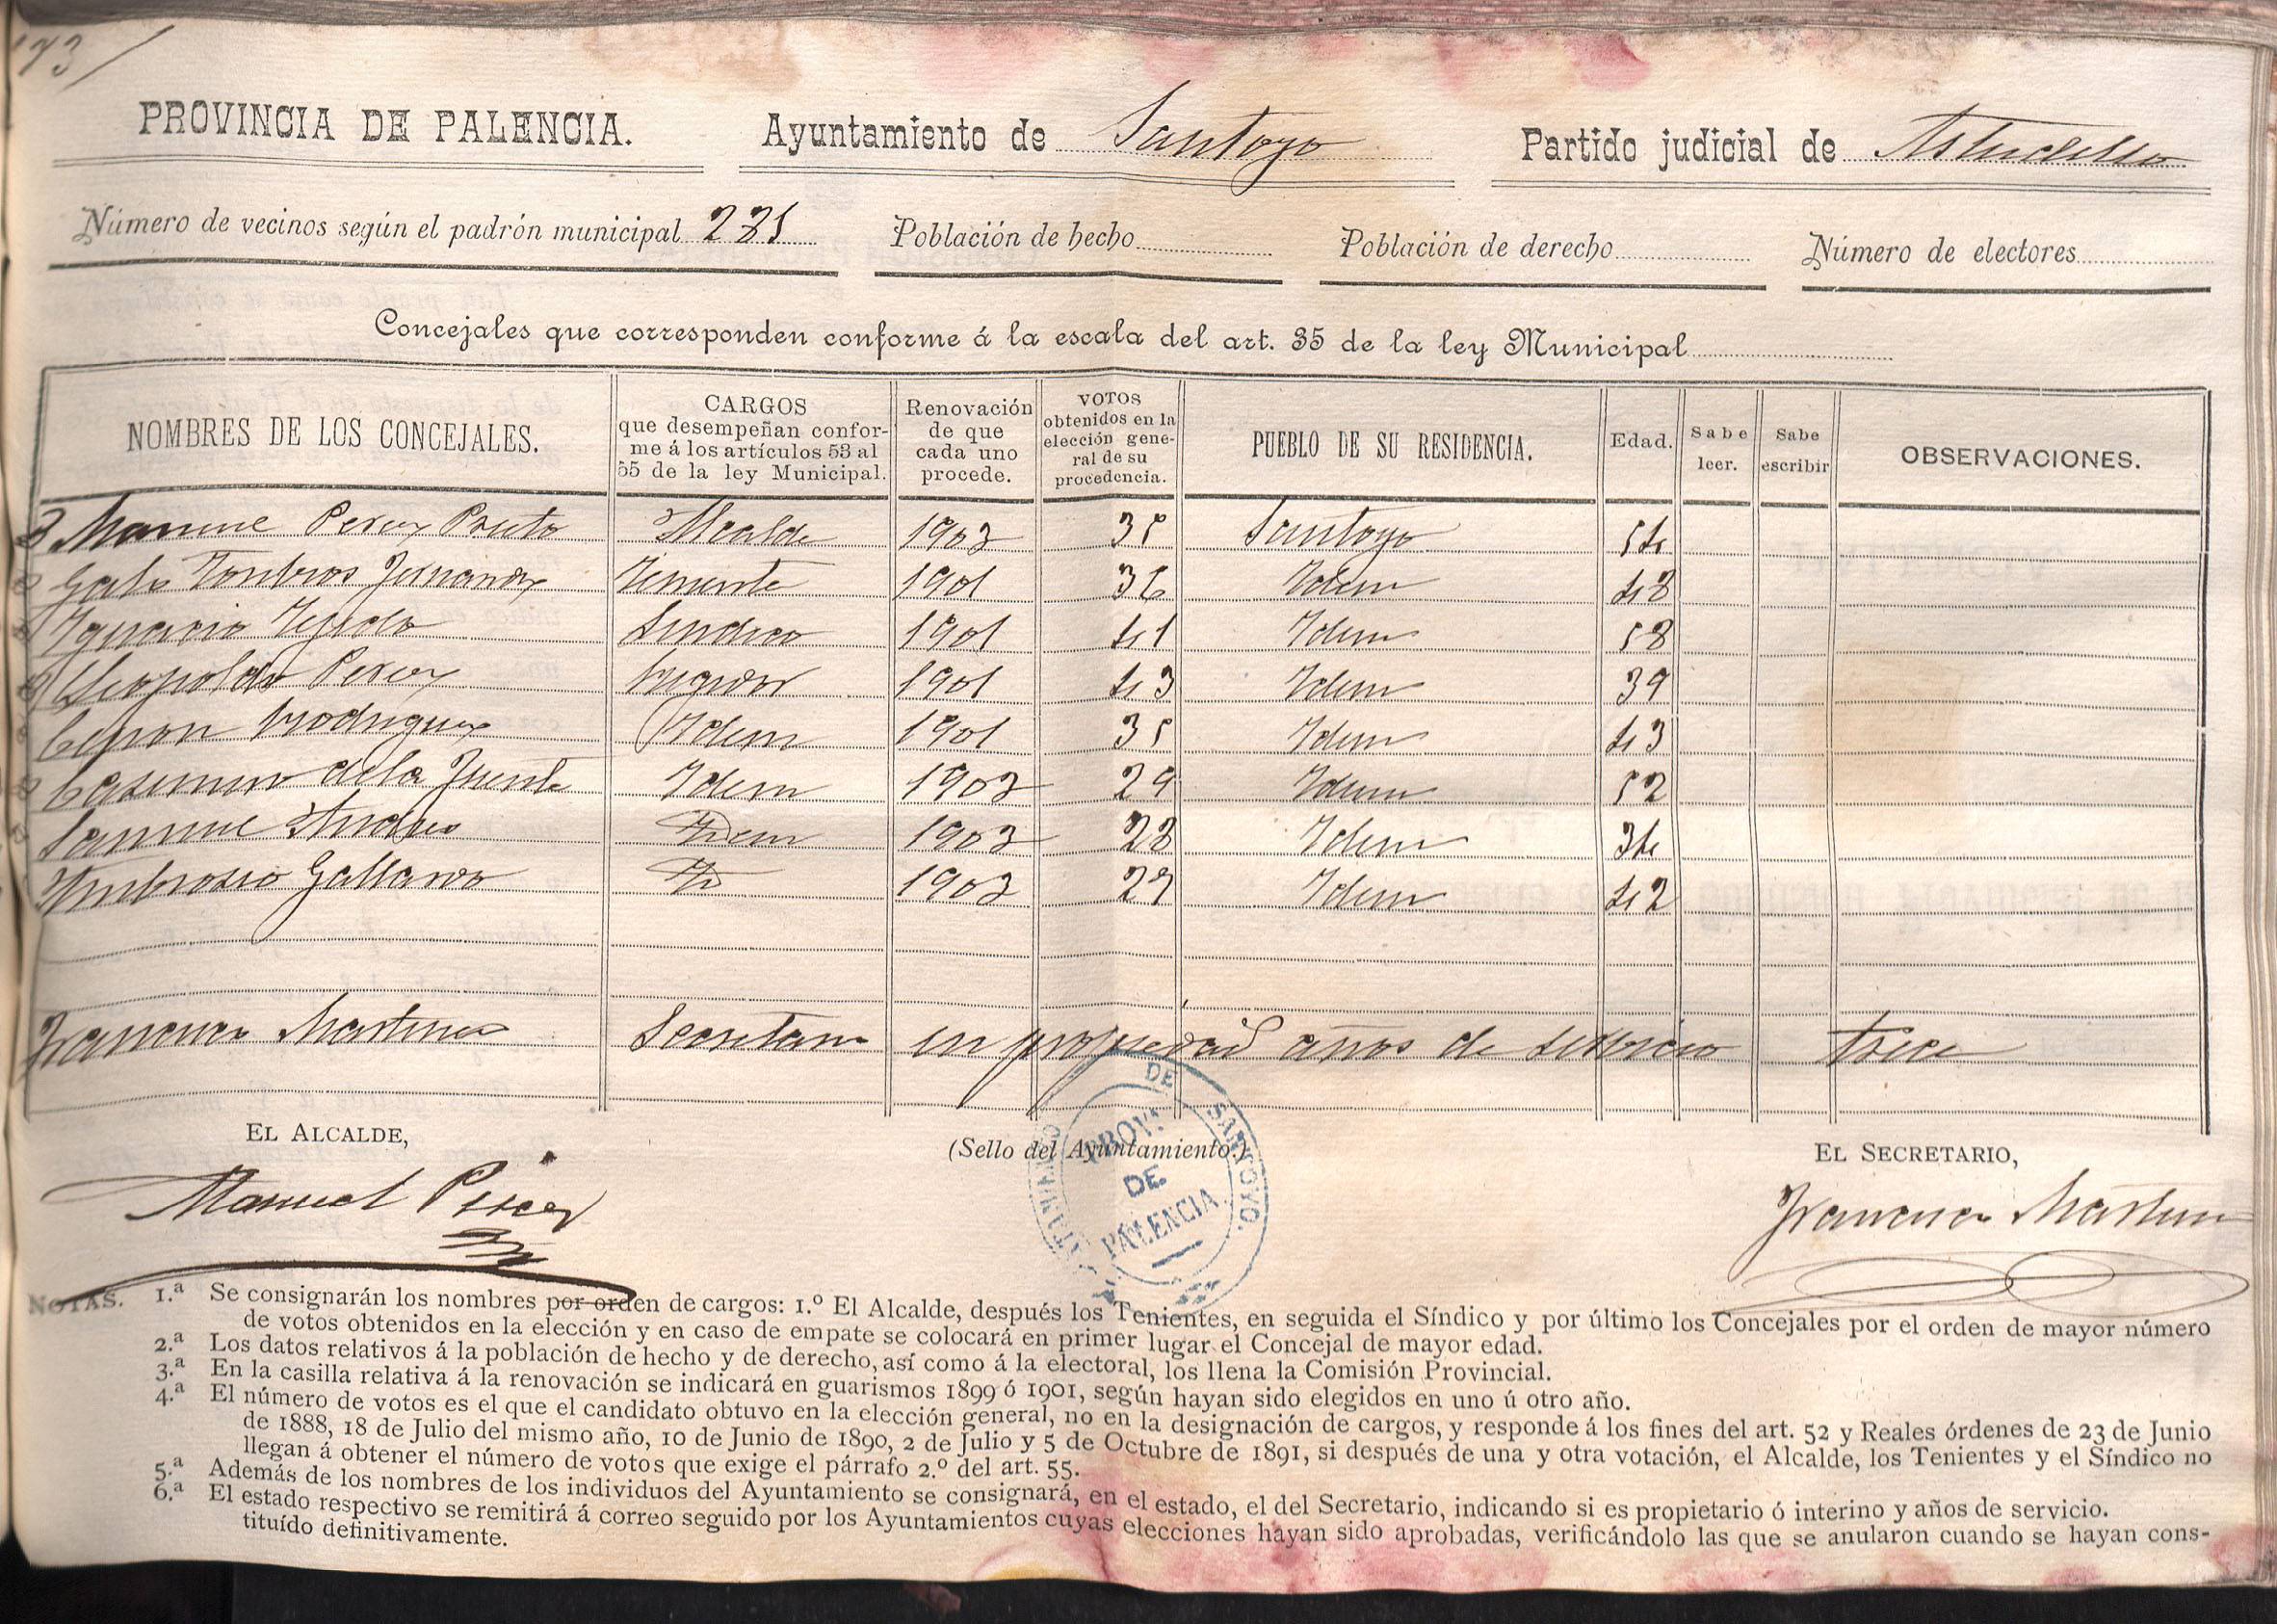 173/
PROVINCIA DE PALENCIA. Ayuntamiento de Santoyo Partido judicial de Astudillo
Número de vecinos según el padrón municipal 231 Población de hecho Población de derecho Número de electores
Concejales que corresponden conforme á la escala del art. 35 de la ley Municipal
NOMBRES DE LOS CONCEJALES. CARGOS que desempeñan conforme á los artículos 53 al 55 de la ley Municipal. Renovación de que cada uno procede. VOTOS obtenidos en la elección general de su procedencia. PUEBLO DE SU RESIDENCIA. Edad. Sabe leer. Sabe escribir OBSERVACIONES.
Manuel Perez Prieto Alcalde 1903 35 Santoyo 54
Galo Fernandez Teniente 1901 36 Idem 48
Ignacio Tejedo Sindico 1901 41 Idem 58
Leopoldo Perez Regidor 1901 43 Idem 39
Ceson Rodriguez Idem 1901 35 Idem 43
Casimiro de la Fuente Idem 1903 29 Idem 52
Samuel Andres Idem 1903 28 Idem 34
Ambrosio Gallardo Id 1903 27 Idem 42
Francisco Martinez Secretario en propiedad años de servicio trece
EL ALCALDE, (Sello del Ayuntamiento.) EL SECRETARIO,
AYUNTAMIENTO DE SANTOYO.
PROV.
DE
PALENCIA
Manuel Perez Francisco Martinez
NOTAS. 1.ª Se consignarán los nombres por orden de cargos: 1.º El Alcalde, después los Tenientes, en seguida el Síndico y por último los Concejales por el orden de mayor número
de votos obtenidos en la elección y en caso de empate se colocará en primer lugar el Concejal de mayor edad.
2.ª Los datos relativos á la población de hecho y de derecho, así como á la electoral, los llena la Comisión Provincial.
3.ª En la casilla relativa á la renovación se indicará en guarismos 1899 ó 1901, según hayan sido elegidos en uno ú otro año.
4.ª El número de votos es el que el candidato obtuvo en la elección general, no en la designación de cargos, y responde á los fines del art. 52 y Reales órdenes de 23 de Junio
de 1888, 18 de Julio del mismo año, 10 de Junio de 1890, 2 de Julio y 5 de Octubre de 1891, si después de una y otra votación, el Alcalde, los Tenientes y el Síndico no
llegan á obtener el número de votos que exige el párrafo 2.º del art. 55.
5.ª Además de los nombres de los individuos del Ayuntamiento se consignará, en el estado, el del Secretario, indicando si es propietario ó interino y años de servicio.
6.ª El estado respectivo se remitirá á correo seguido por los Ayuntamientos cuyas elecciones hayan sido aprobadas, verificándolo las que se anularon cuando se hayan cons-
tituído definitivamente.